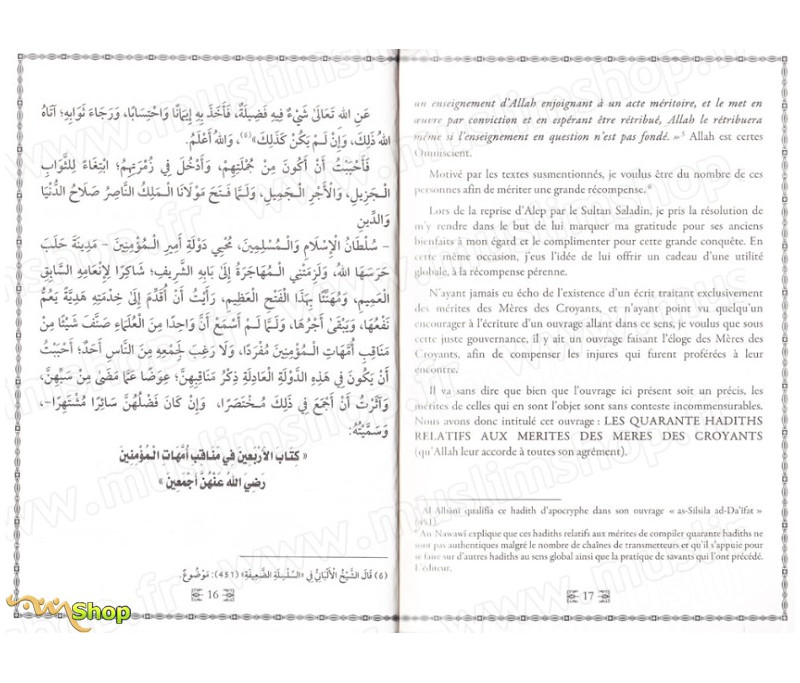 عَنِ الله تَعَالَىٰ شَيْءٌ فِيهِ فَضِيلَةٌ، فَأَخَذَ بِهِ إِيمَانًا وَاحْتِسَابًا، وَرَجَاءَ ثَوَابِهِ؛ آتَاهُ
اللهُ ذَلِكَ، وَإِنْ لَمْ يَكُنْ كَذَلِكَ»(6)، وَاللهُ أَعْلَمُ.
فَأَحْبَبْتُ أَنْ أَكُونَ مِنْ جُمْلَتِهِمْ، وَأَدْخُلَ فِي زُمْرَتِهِمُ؛ ابْتِغَاءً لِلثَّوَابِ
الْجَزِيلِ، وَالْأَجْرِ الْجَمِيلِ، وَلَـمَّا فَتَحَ مَوْلَانَا الْـمَلِكُ النَّاصِرُ صَلَاحُ الدُّنْيَا
وَالدِّينِ
- سُلْطَانُ الْإِسْلَامِ وَالْـمُسْلِمِينَ، مُحْيِي دَوْلَةِ أَمِيرِ الْـمُؤْمِنِينَ - مَدِينَةَ حَلَبَ
حَرَسَهَا اللهُ، وَلَزِمَتْنِي الْـمُهَاجَرَةُ إِلَىٰ بَابِهِ الشَّرِيفِ؛ شَاكِرًا لِإِنْعَامِهِ السَّابِقِ
الْعَمِيمِ، وَمُهَنِّئًا بِهَذَا الْفَتْحِ الْعَظِيمِ، رَأَيْتُ أَنْ أُقَدِّمَ إِلَى خِدْمَتِهِ هَدِيَّةً يَعُمُّ
نَفْعُهَا، وَيَبْقَىٰ أَجْرُهَا، وَلَـمَّا لَـمْ أَسْمَعْ أَنَّ وَاحِدًا مِنَ الْعُلَمَاءِ صَنَّفَ شَيْئًا مِنْ
مَنَاقِبِ أُمَّهَاتِ الْـمُؤْمِنِينَ مُفْرَدًا، وَلَا رَغِبَ لِجَمْعِهِ مِنَ النَّاسِ أَحَدٌ؛ أَحْبَبْتُ
أَنْ يَكُونَ فِي هَذِهِ الدَّوْلَةِ الْعَادِلَةِ ذِكْرُ مَنَاقِبِهِنَّ؛ عِوَضًا عَمَّا مَضَىٰ مِنْ سَبِّهِنَّ،
وَآثَرْتُ أَنْ أَجْمَعَ فِي ذَلِكَ مُـخْتَصَرًا، وَإِنْ كَانَ فَضْلُهُنَّ سَائِرًا مُشْتَهِرًا-،
وَسَمَّيْتُهُ:
« كِتَابَ الْأَرْبَعِينَ فِي مَنَاقِبِ أُمَّهَاتِ الْـمُؤْمِنِينَ
رضِيَ اللهُ عَنْهُنَّ أَجْمَعِينَ »
(6) قَالَ الشَّيْخُ الْأَلْبَانِيُّ فِي «السِّلْسِلَةِ الضَّعِيفَةِ» (451): مَوْضُوعٌ.
16
Shop
un enseignement d'Allah enjoignant à un acte méritoire, et le met en
œuvre par conviction et en espérant être rétribué, Allah le rétribuera
même si l'enseignement en question n'est pas fondé. »⁵ Allah est certes
Omniscient.
Motivé par les textes susmentionnés, je voulus être du nombre de ces
personnes afin de mériter une grande récompense.⁶
Lors de la reprise d'Alep par le Sultan Saladin, je pris la résolution de
m'y rendre dans le but de lui marquer ma gratitude pour ses anciens
bienfaits à mon égard et le complimenter pour cette grande conquête. En
cette même occasion, j'eus l'idée de lui offrir un cadeau d'une utilité
globale, à la récompense pérenne.
N'ayant jamais eu écho de l'existence d'un écrit traitant exclusivement
des mérites des Mères des Croyants, et n'ayant point vu quelqu'un
encourager à l'écriture d'un ouvrage allant dans ce sens, je voulus que sous
cette juste gouvernance, il y ait un ouvrage faisant l'éloge des Mères des
Croyants, afin de compenser les injures qui furent proférées à leur
encontre.
Il va sans dire que bien que l'ouvrage ici présent soit un précis, les
mérites de celles qui en sont l'objet sont sans conteste incommensurables.
Nous avons donc intitulé cet ouvrage : LES QUARANTE HADITHS
RELATIFS AUX MERITES DES MERES DES CROYANTS
(qu'Allah leur accorde à toutes son agrément).
Al Albânî qualifia ce hadith d'apocryphe dans son ouvrage « as-Silsila ad-Da'îfat »
(451).
An Nawawî explique que ces hadiths relatifs aux mérites de compiler quarante hadiths ne
sont pas authentiques malgré le nombre de chaînes de transmetteurs et qu'il s'appuie pour
se faire sur d'autres hadiths au sens global ainsi que la pratique de savants qui l'ont précédé.
L'éditeur.
17
www.muslimshop.fr